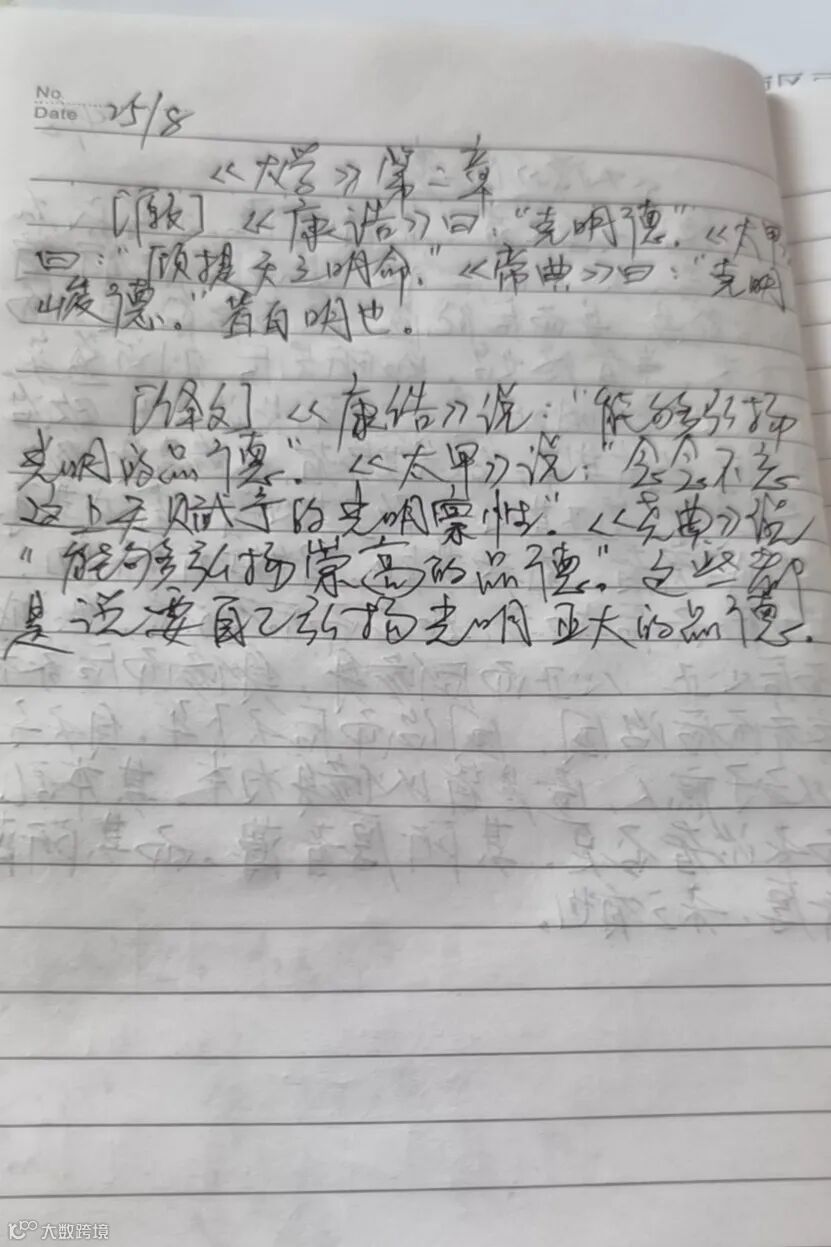 No.
Date 25/8
《大学》第二章
[原文] 《康诰》曰："克明德。"《太甲》
曰："顾提天之明命。"《帝典》曰："克明
峻德。"皆自明也。
[译文]《康诰》说："能够弘扬
光明的品德。"《太甲》说："念念不忘
这上天赋予的光明禀性。"《尧典》说
"能够弘扬崇高的品德。"这些都
是说要自己弘扬光明正大的品德.
大数跨境